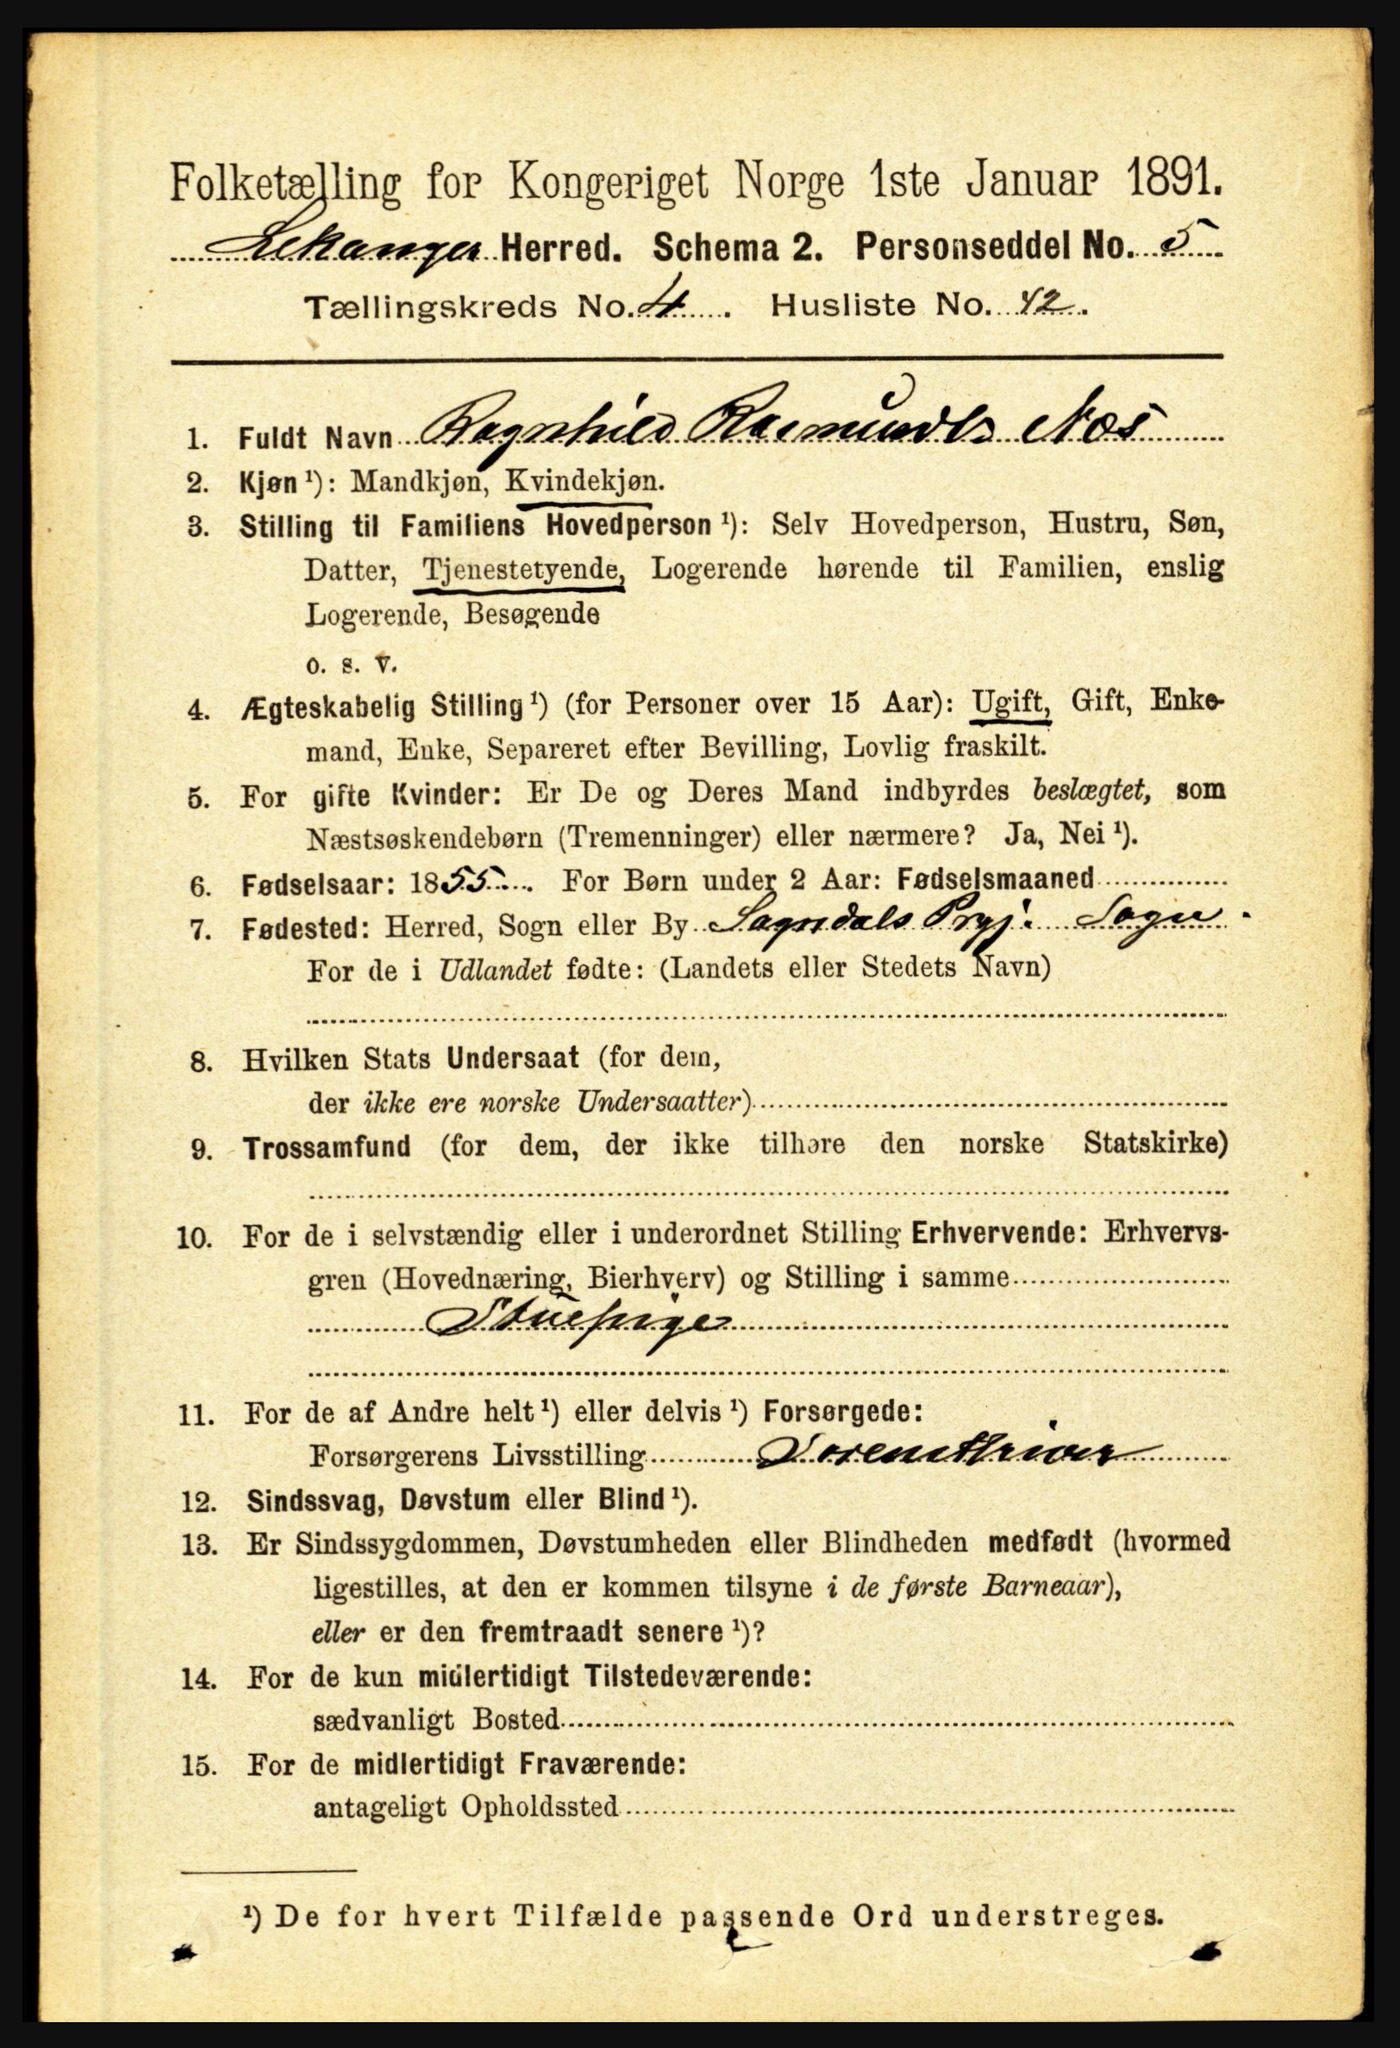 Folketælling for Kongeriget Norge 1ste Januar 1891.
Lekanger Herred. Schema 2. Personseddel No. 5
Tællingskreds No. 4. Husliste No. 42.
1. Fuldt Navn Ragnhild Rasmundsd. Næs
2. Kjøn ¹): Mandkjøn, Kvindekjøn.
3. Stilling til Familiens Hovedperson ¹): Selv Hovedperson, Hustru, Søn,
Datter, Tjenestetyende, Logerende hørende til Familien, enslig
Logerende, Besøgende
o. s. v.
4. Ægteskabelig Stilling ¹) (for Personer over 15 Aar): Ugift, Gift, Enke-
mand, Enke, Separeret efter Bevilling, Lovlig fraskilt.
5. For gifte Kvinder: Er De og Deres Mand indbyrdes beslægtet, som
Næstsøskendebørn (Tremenninger) eller nærmere? Ja, Nei ¹).
6. Fødselsaar: 1855. For Børn under 2 Aar: Fødselsmaaned
7. Fødested: Herred, Sogn eller By Sogndals Prgj. Sogn.
For de i Udlandet fødte: (Landets eller Stedets Navn)
8. Hvilken Stats Undersaat (for dem,
der ikke ere norske Undersaatter)
9. Trossamfund (for dem, der ikke tilhøre den norske Statskirke)
10. For de i selvstændig eller i underordnet Stilling Erhvervende: Erhvervs-
gren (Hovednæring, Bierhverv) og Stilling i samme
Stuepige
11. For de af Andre helt ¹) eller delvis ¹) Forsørgede:
Forsørgerens Livsstilling Sorenskriver
12. Sindssvag, Døvstum eller Blind ¹).
13. Er Sindssygdommen, Døvstumheden eller Blindheden medfødt (hvormed
ligestilles, at den er kommen tilsyne i de første Barneaar),
eller er den fremtraadt senere ¹)?
14. For de kun midlertidigt Tilstedeværende:
sædvanligt Bosted
15. For de midlertidigt Fraværende:
antageligt Opholdssted
¹) De for hvert Tilfælde passende Ord understreges.